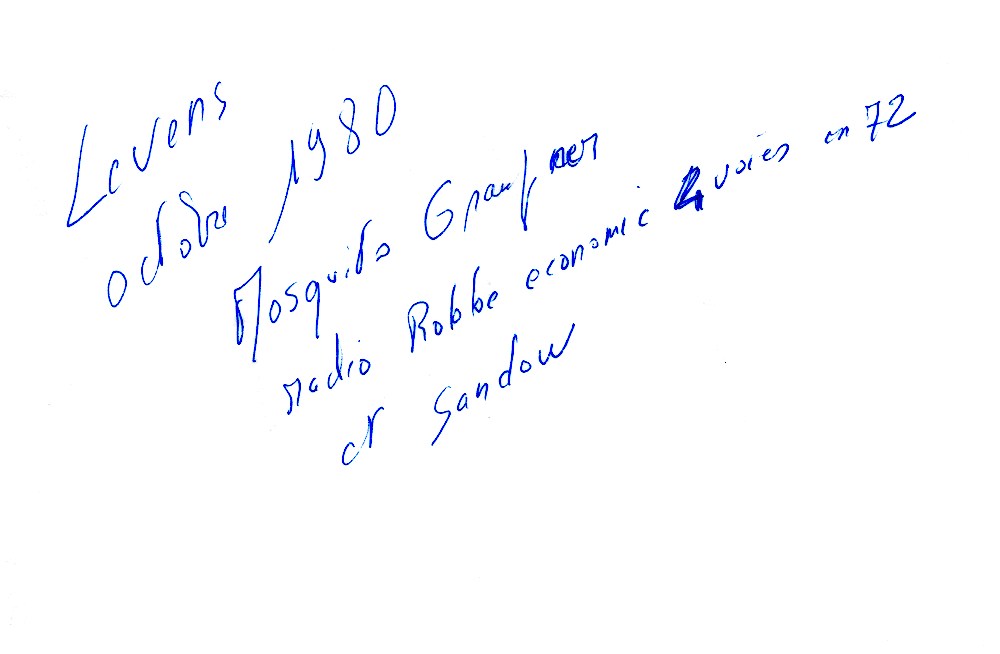 Levens
octobre 1980
Mosquito Graupner
radio Robbe economic 4 voies en 72
et Sandow